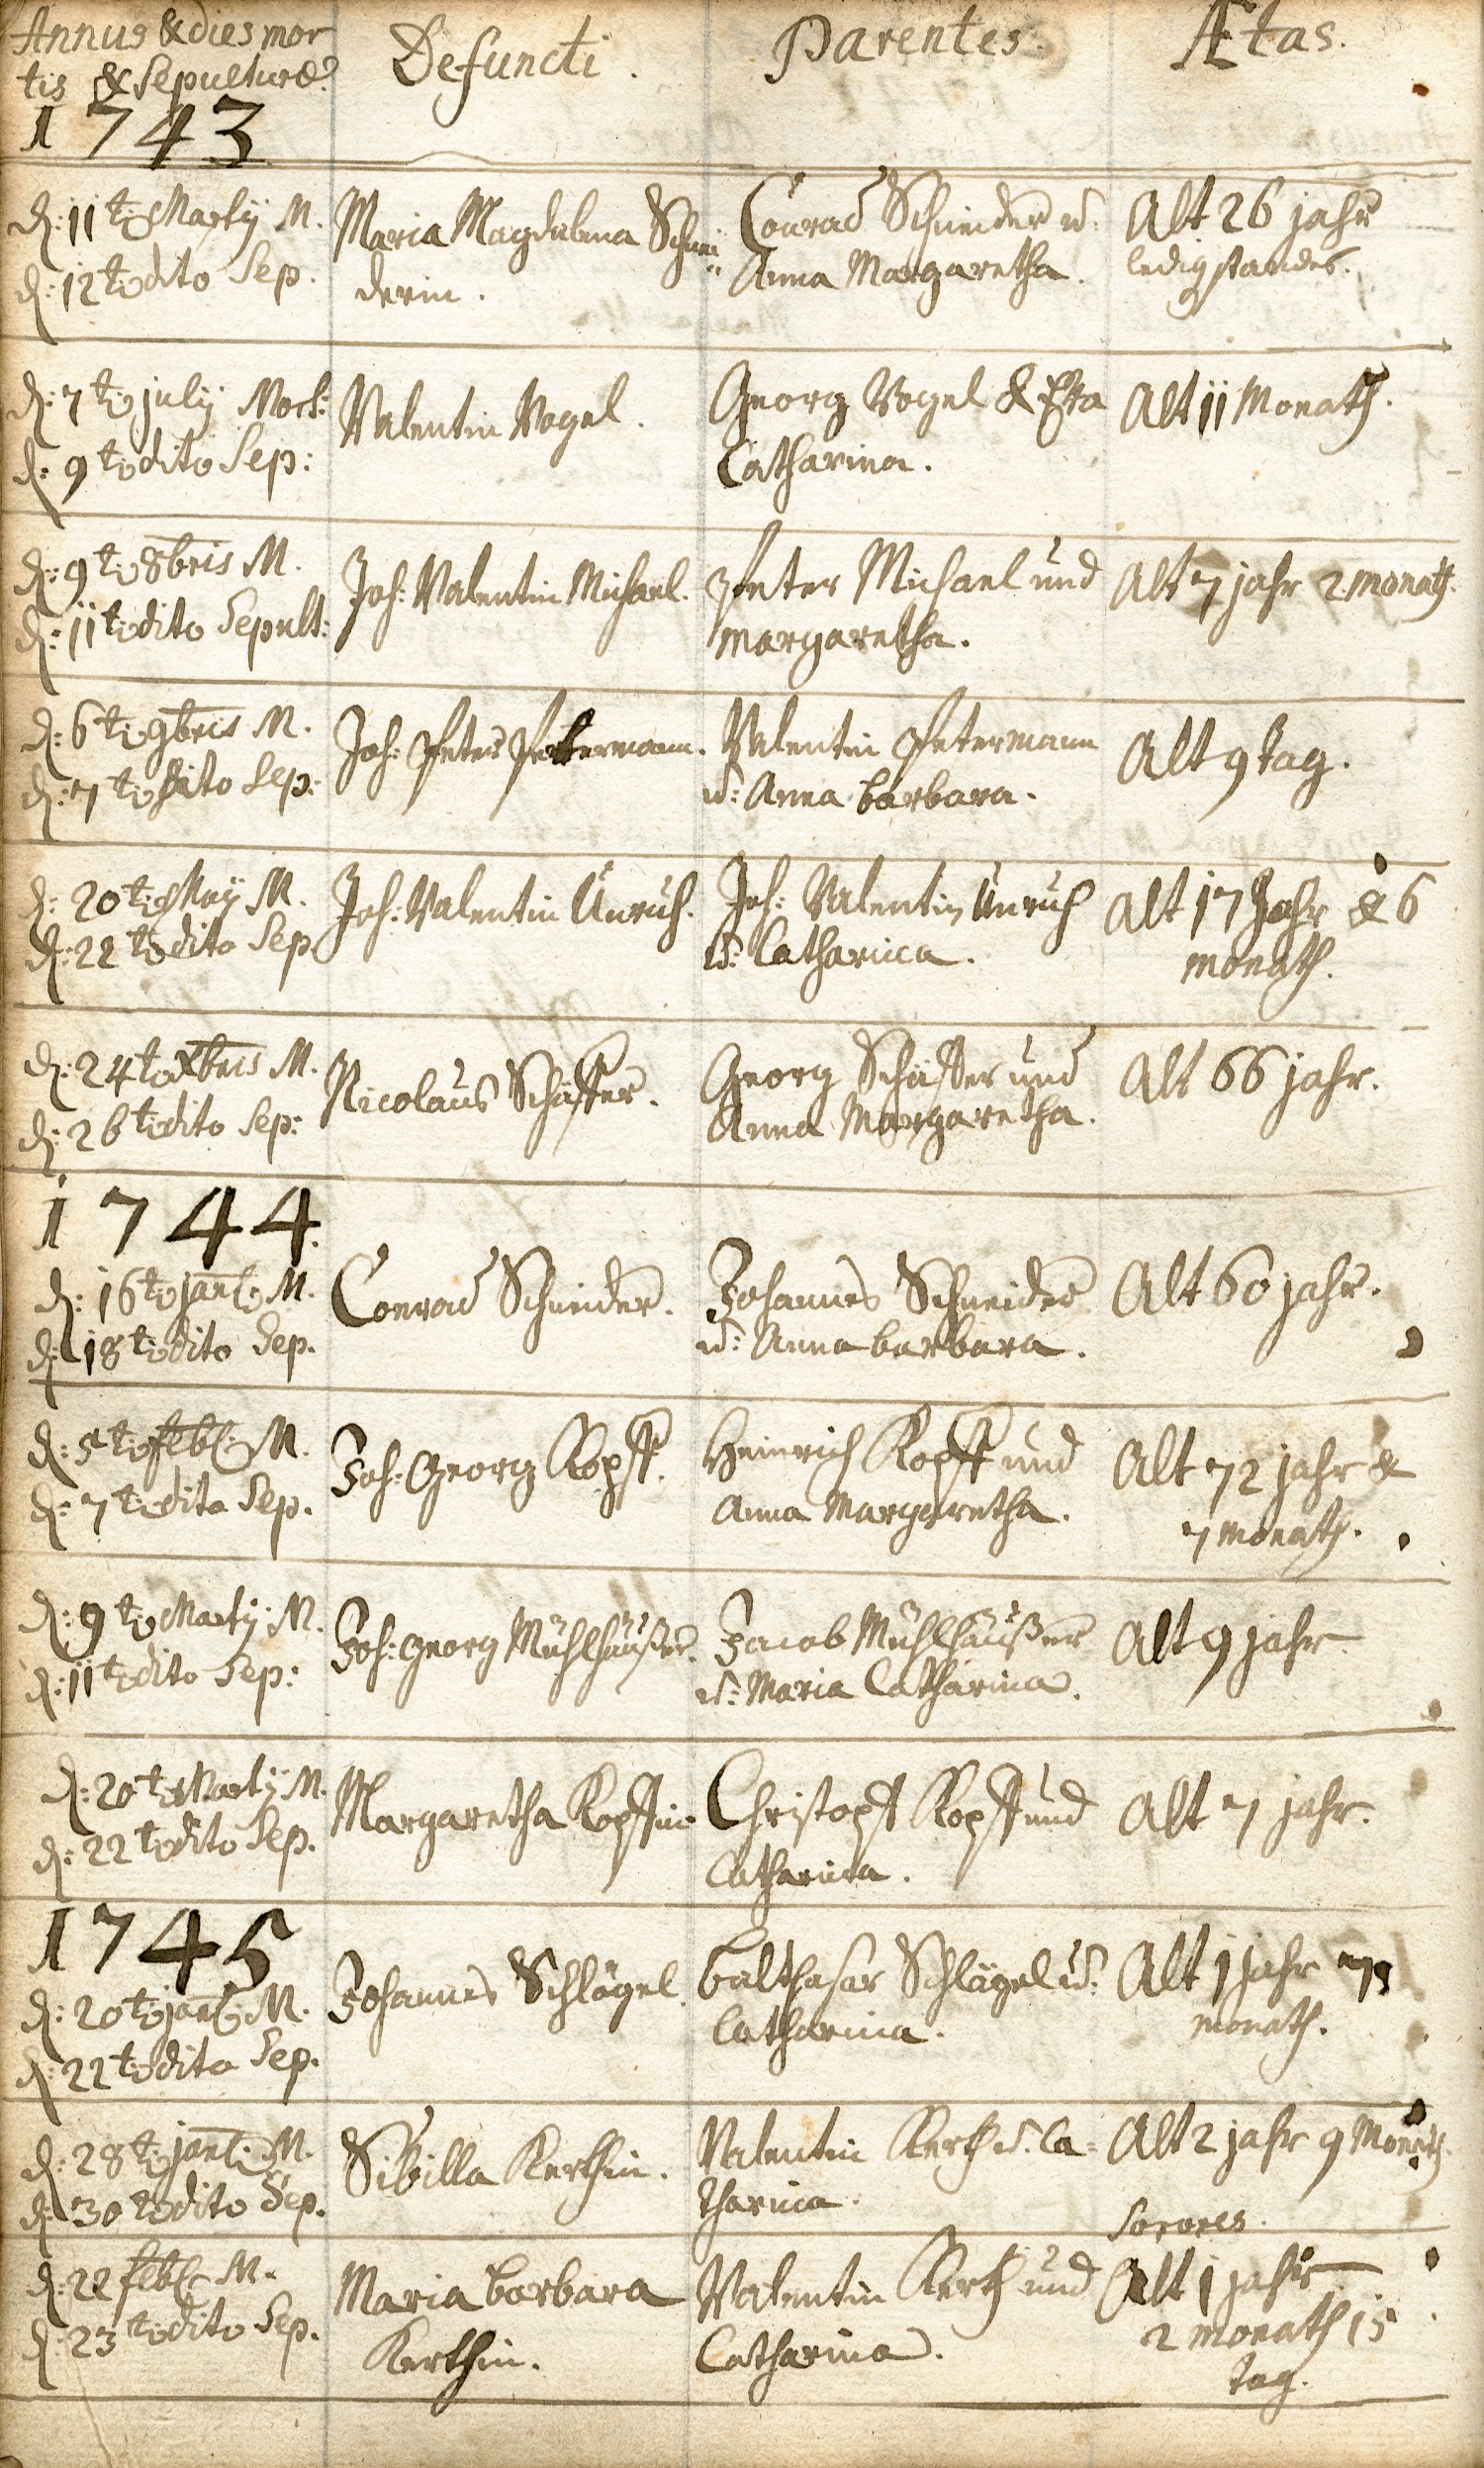 Annus & dies mor
tis & Sepulturæ.
Defuncti.
Parentes.
Ætas.
1743
d: 11t Martÿ M.
d: 12t dito Sep.
Maria Magdalena Schnei=
derin.
Conrad Schneider u.
Anna Margaretha.
Alt 26 jahr
ledig standes.
d: 7t julÿ Mort:
d: 9t dito Sep:
Valentin Vogel.
Georg Vogel &
Catharina.
Alt 11 Monath.
d: 9t 8bris M.
d: 11t dito Sepult:
Joh: Valentin Michael.
Peter Michael und
Margaretha.
Alt 7 jahr 2 monath.
d: 6t 9bris M.
d: 7t dito Sep:
Joh: Peter Petermann.
Valentin Petermann
u: Anna barbara.
Alt 9 tag.
d: 20t Maÿ M.
d: 22t dito Sep
Joh: Valentin Unruh.
Joh: Valentin Unruh
u: Catharina.
Alt 17 Jahr & 6
monath.
d: 24t Xbris M.
d: 26t dito Sep:
Nicolaus Schäffer.
Georg Schäffer und
Anna Margaretha.
Alt 66 jahr.
1744.
d: 16t jan: M.
d: 18t dito Sep.
Conrad Schneider.
Johannes Schneider
u: Anna barbara.
Alt 60 jahr.
d: 5t feb: M.
d: 7t dito Sep.
Joh: Georg Kopff.
Heinrich Kopff und
Anna Margaretha.
Alt 72 jahr &
7 monath.
d: 9t Martÿ M.
d: 11t dito Sep:
Joh: Georg Mühlhäußer.
Jacob Mühlhäußer
u: Maria Catharina.
Alt 9 jahr
d: 20t Martÿ M.
d: 22t dito Sep.
Margaretha Kopffin
Christoph Kopff und
Catharina.
Alt 7 jahr.
1745
d: 20t jan: M.
d: 22t dito Sep.
Johannes Schlägel.
balthasar Schlägel u:
Catharina.
Alt 1 jahr
monath.
d: 28t jan: M.
d: 30t dito Sep.
Sibilla Kerthin.
Valentin Kerth u. Ca=
tharina.
Alt 2 jahr 9 Monath.
Sorores.
d: 22 feb: M.
d: 23t dito Sep.
Maria barbara
Kerthin.
Valentin Kerth und
Catharina.
Alt 1 jahr
2 monath 15
tag.